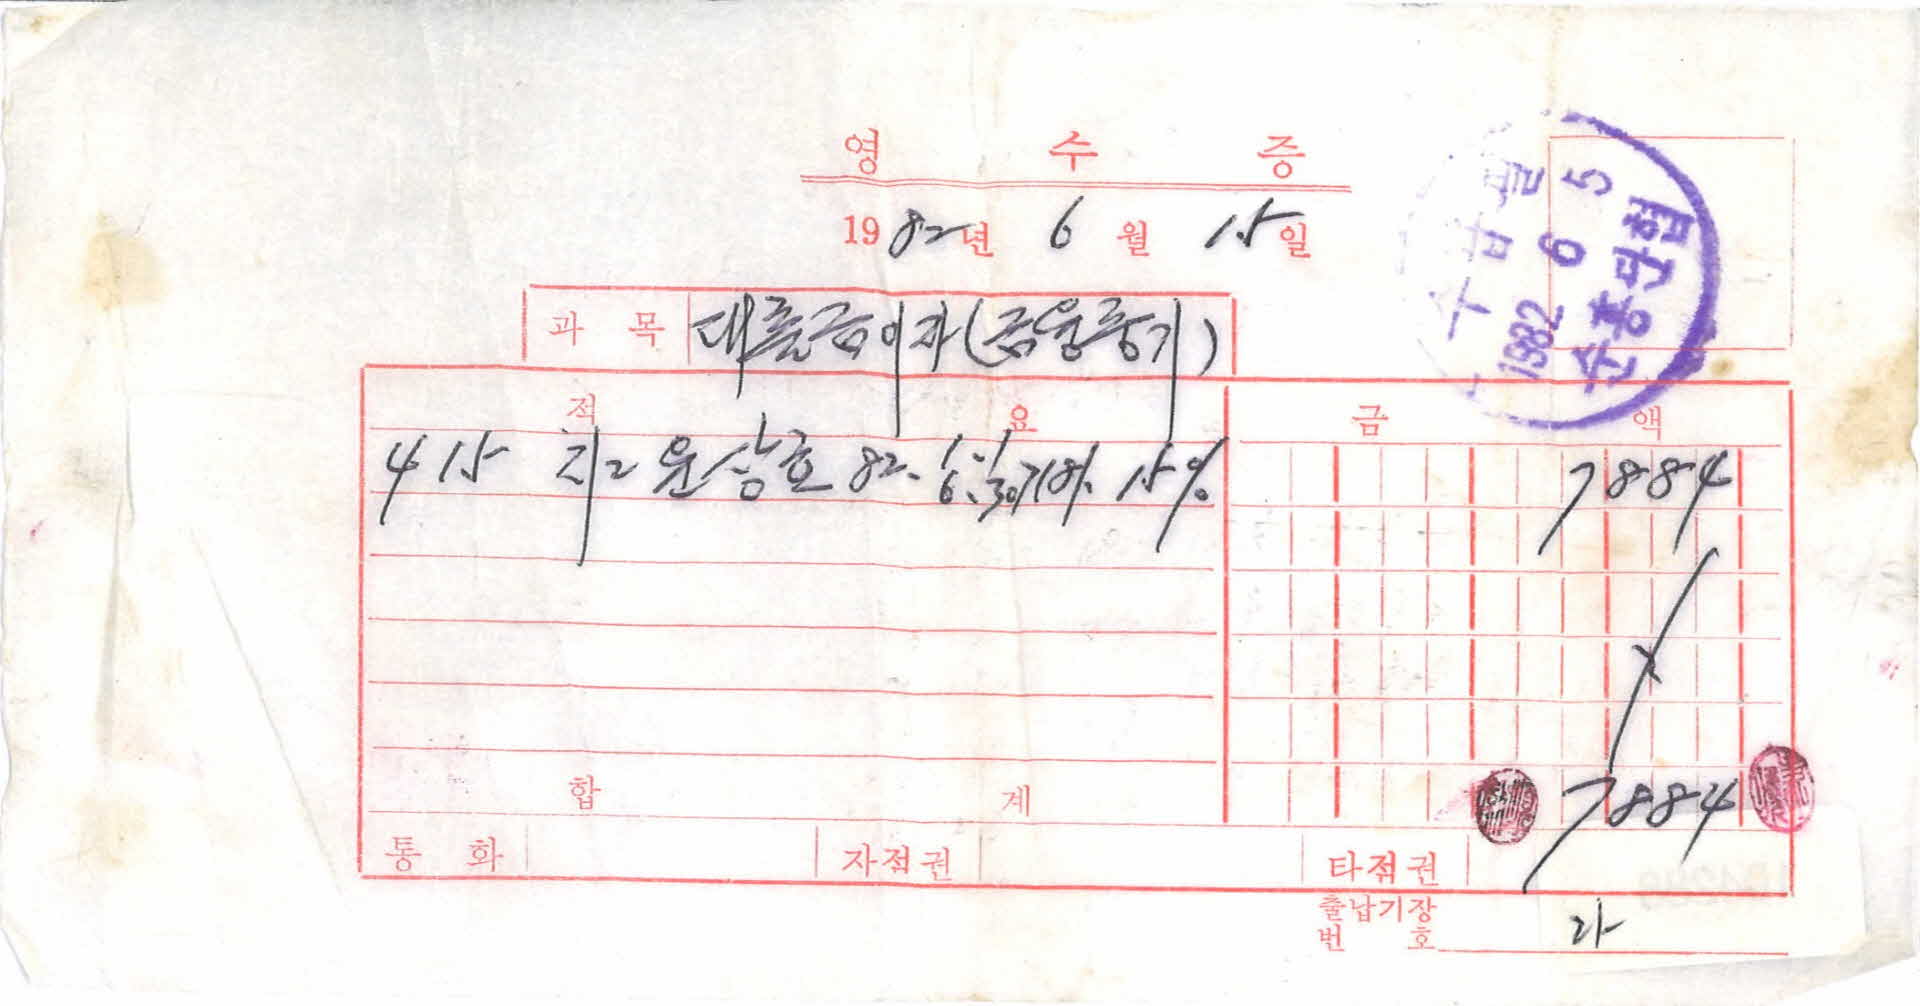 영 수 증
1982년 6월 15일
수납필
1982 6 5
순흥단협
과 목 대출금이자(금융중기)
적 요 금 액
415 지2 윤상호 82. 15% 7884
합 계 7884
통 화 자점권 타점권
출납기장
번 호